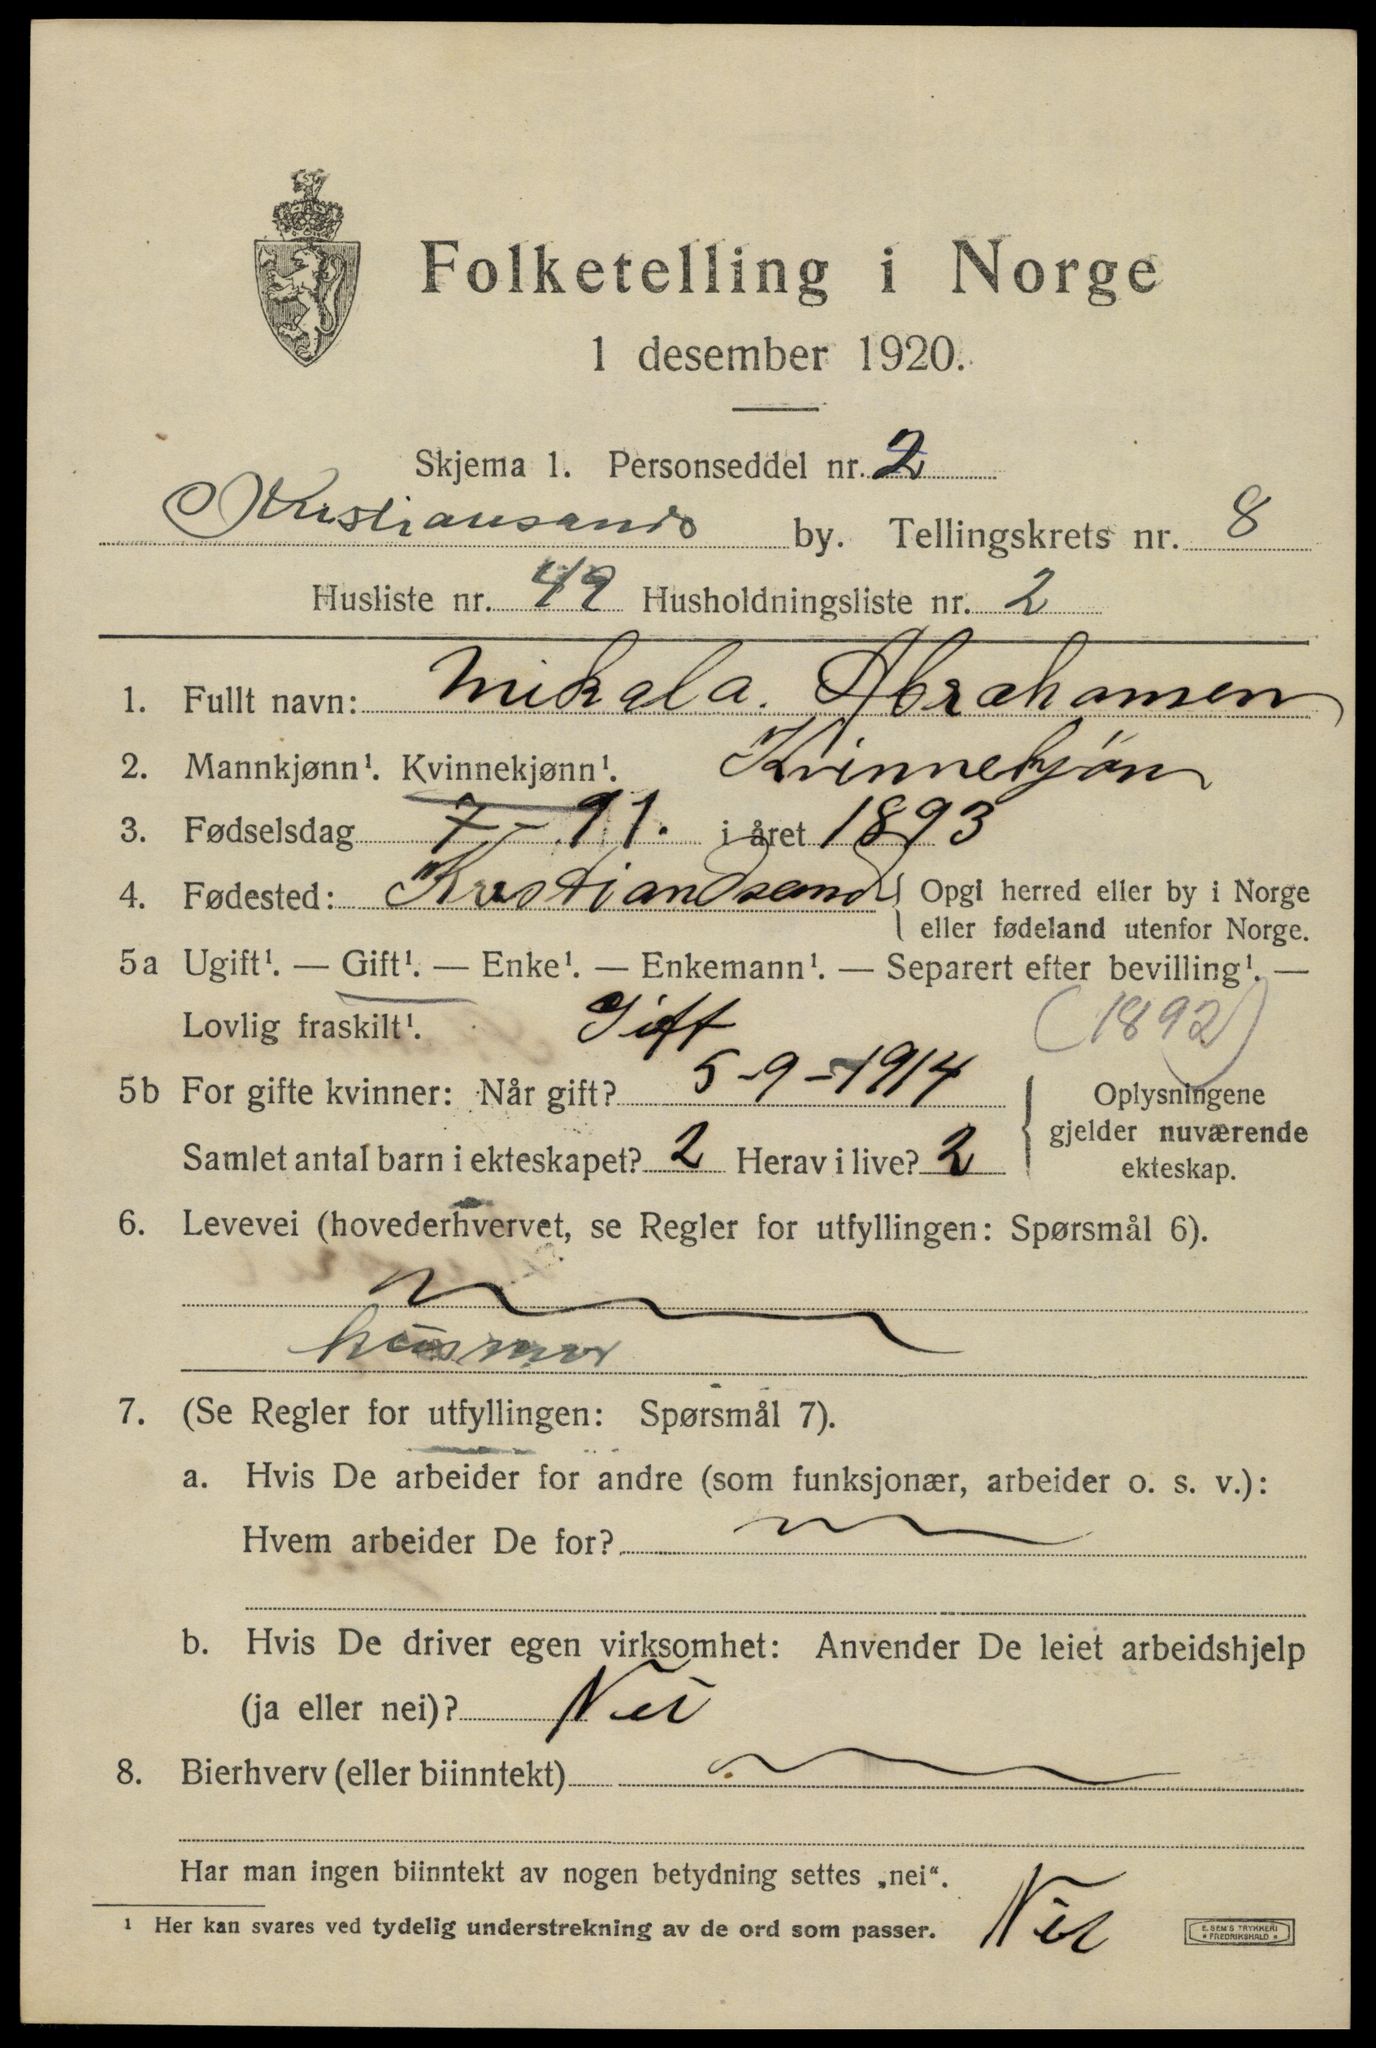 Folketelling i Norge
1 desember 1920.
Skjema 1. Personseddel nr. 2
Kristiansands by. Tellingskrets nr. 8
Husliste nr. 49 Husholdningsliste nr. 2
1. Fullt navn: Mikala. Abrahamsen
2. Mannkjønn¹. Kvinnekjønn¹. Kvinnekjøn
3. Fødselsdag 7 - 11. i året 1893
4. Fødested: Kristiandsand { Opgi herred eller by i Norge
eller fødeland utenfor Norge.
5a Ugift¹. — Gift¹. — Enke¹. — Enkemann¹. — Separert efter bevilling¹. —
Lovlig fraskilt¹. Gift (1892)
5b For gifte kvinner: Når gift? 5-9-1914
Samlet antal barn i ekteskapet? 2 Herav i live? 2
} Oplysningene
gjelder nuværende
ekteskap.
6. Levevei (hovederhvervet, se Regler for utfyllingen: Spørsmål 6).
husmor
7. (Se Regler for utfyllingen: Spørsmål 7).
a. Hvis De arbeider for andre (som funksjonær, arbeider o. s. v.):
Hvem arbeider De for?
b. Hvis De driver egen virksomhet: Anvender De leiet arbeidshjelp
(ja eller nei)? Nei
8. Bierhverv (eller biinntekt)
Har man ingen biinntekt av nogen betydning settes „nei“. Nei
¹ Her kan svares ved tydelig understrekning av de ord som passer.
E. SEM'S TRYKKERI
FREDRIKSHALD